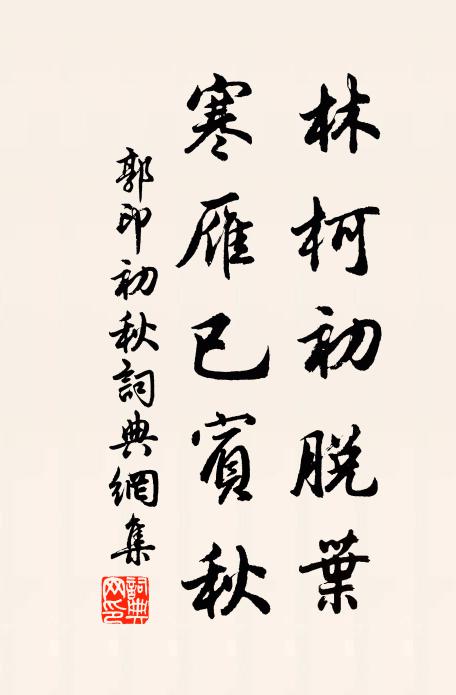 林柯初脱葉
寒雁已賓秋
郭印初秋詞典網集
詞典网印